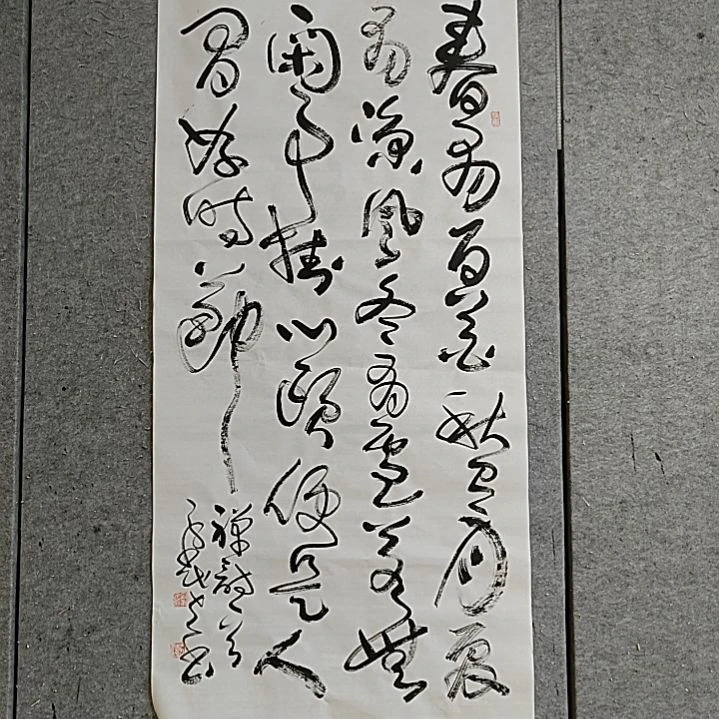 春有百花秋有月夏
有凉風冬有雪若無
閑事掛心頭便是人
間好時節
禅詩一首
书